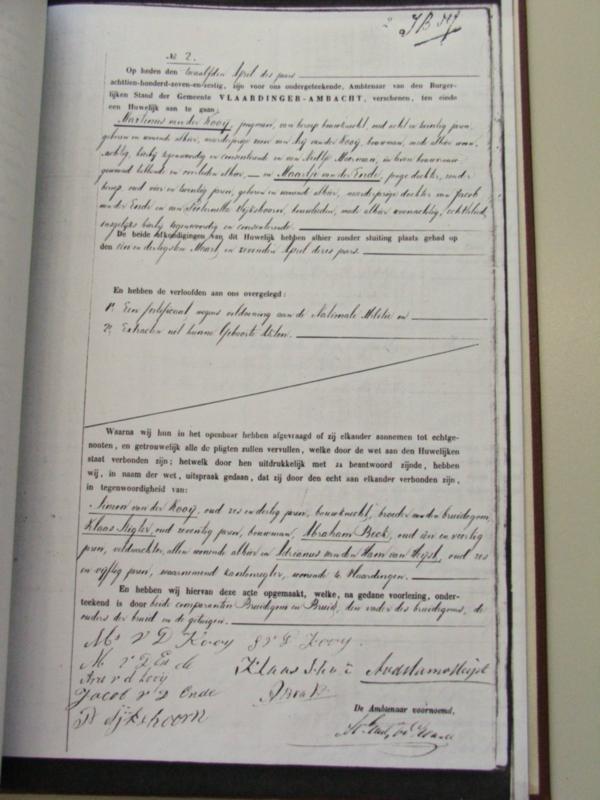 № 2.
Op heden den twaalfden April des jaars
achttien-honderd-zeven-en-zestig, zijn voor ons ondergeteekende, Ambtenaar van den Burger-
lijken Stand der Gemeente VLAARDINGER-AMBACHT, verschenen, ten einde
een Huwelijk aan te gaan:
Martinus van der Kooij, jongman, van beroep bouwknecht, oud acht en twintig jaren,
geboren en wonende alhier, meerderjarige zoon van Arij van der Kooij, bouwman, mede alhier woon-
achtig, hierbij tegenwoordig en consenterende en van Neeltje Moerman, in leven bouwvrouw
gewoond hebbende en overleden alhier, en Maartje van der Ende, jonge dochter, zonder
beroep, oud vier en twintig jaren, geboren en wonende alhier, meerderjarige dochter van Jacob
van der Ende en van Pieternella Dijkshoorn, bouwlieden, mede alhier woonachtig, echtelieden,
insgelijks hierbij tegenwoordig en consenterende.
De beide afkondigingen van dit Huwelijk hebben alhier zonder sluiting plaats gehad op
den een en dertigsten Maart en zevenden April dezes jaars.
En hebben de verloofden aan ons overgelegd:
1º. Een Certificaat wegens voldoening aan de Nationale Militie en
2º. Extracten uit hunne Geboorte Akten.
Waarna wij hun in het openbaar hebben afgevraagd of zij elkander aannemen tot echtge-
nooten, en getrouwelijk alle de pligten zullen vervullen, welke door de wet aan den Huwelijken
staat verbonden zijn; hetwelk door hen uitdrukkelijk met JA beantwoord zijnde, hebben
wij, in naam der wet, uitspraak gedaan, dat zij door den echt aan elkander verbonden zijn,
in tegenwoordigheid van:
Simon van der Kooij, oud zes en dertig jaren, bouwknecht, broeder van den bruidegom,
Klaas oud zeventig jaren, bouwman, Abraham Beek, oud en veertig
jaren, veldwachter, allen wonende alhier en Adrianus van den Ham van Heijst, oud zes
en vijftig jaren, waarnemend kantonregter, wonende te Vlaardingen.
En hebben wij hiervan deze acte opgemaakt, welke, na gedane voorlezing, onder-
teekend is door beide comparanten Bruidegom en Bruid, den vader des bruidegoms, de
ouders der bruid en de getuigen.
Ms v D Kooy S v D Kooy
M v D Ende Klaas AvdHamvHeijst
Arij v d Kooy A
Jacob v D Ende
P Dijkshoorn
De Ambtenaar voornoemd,